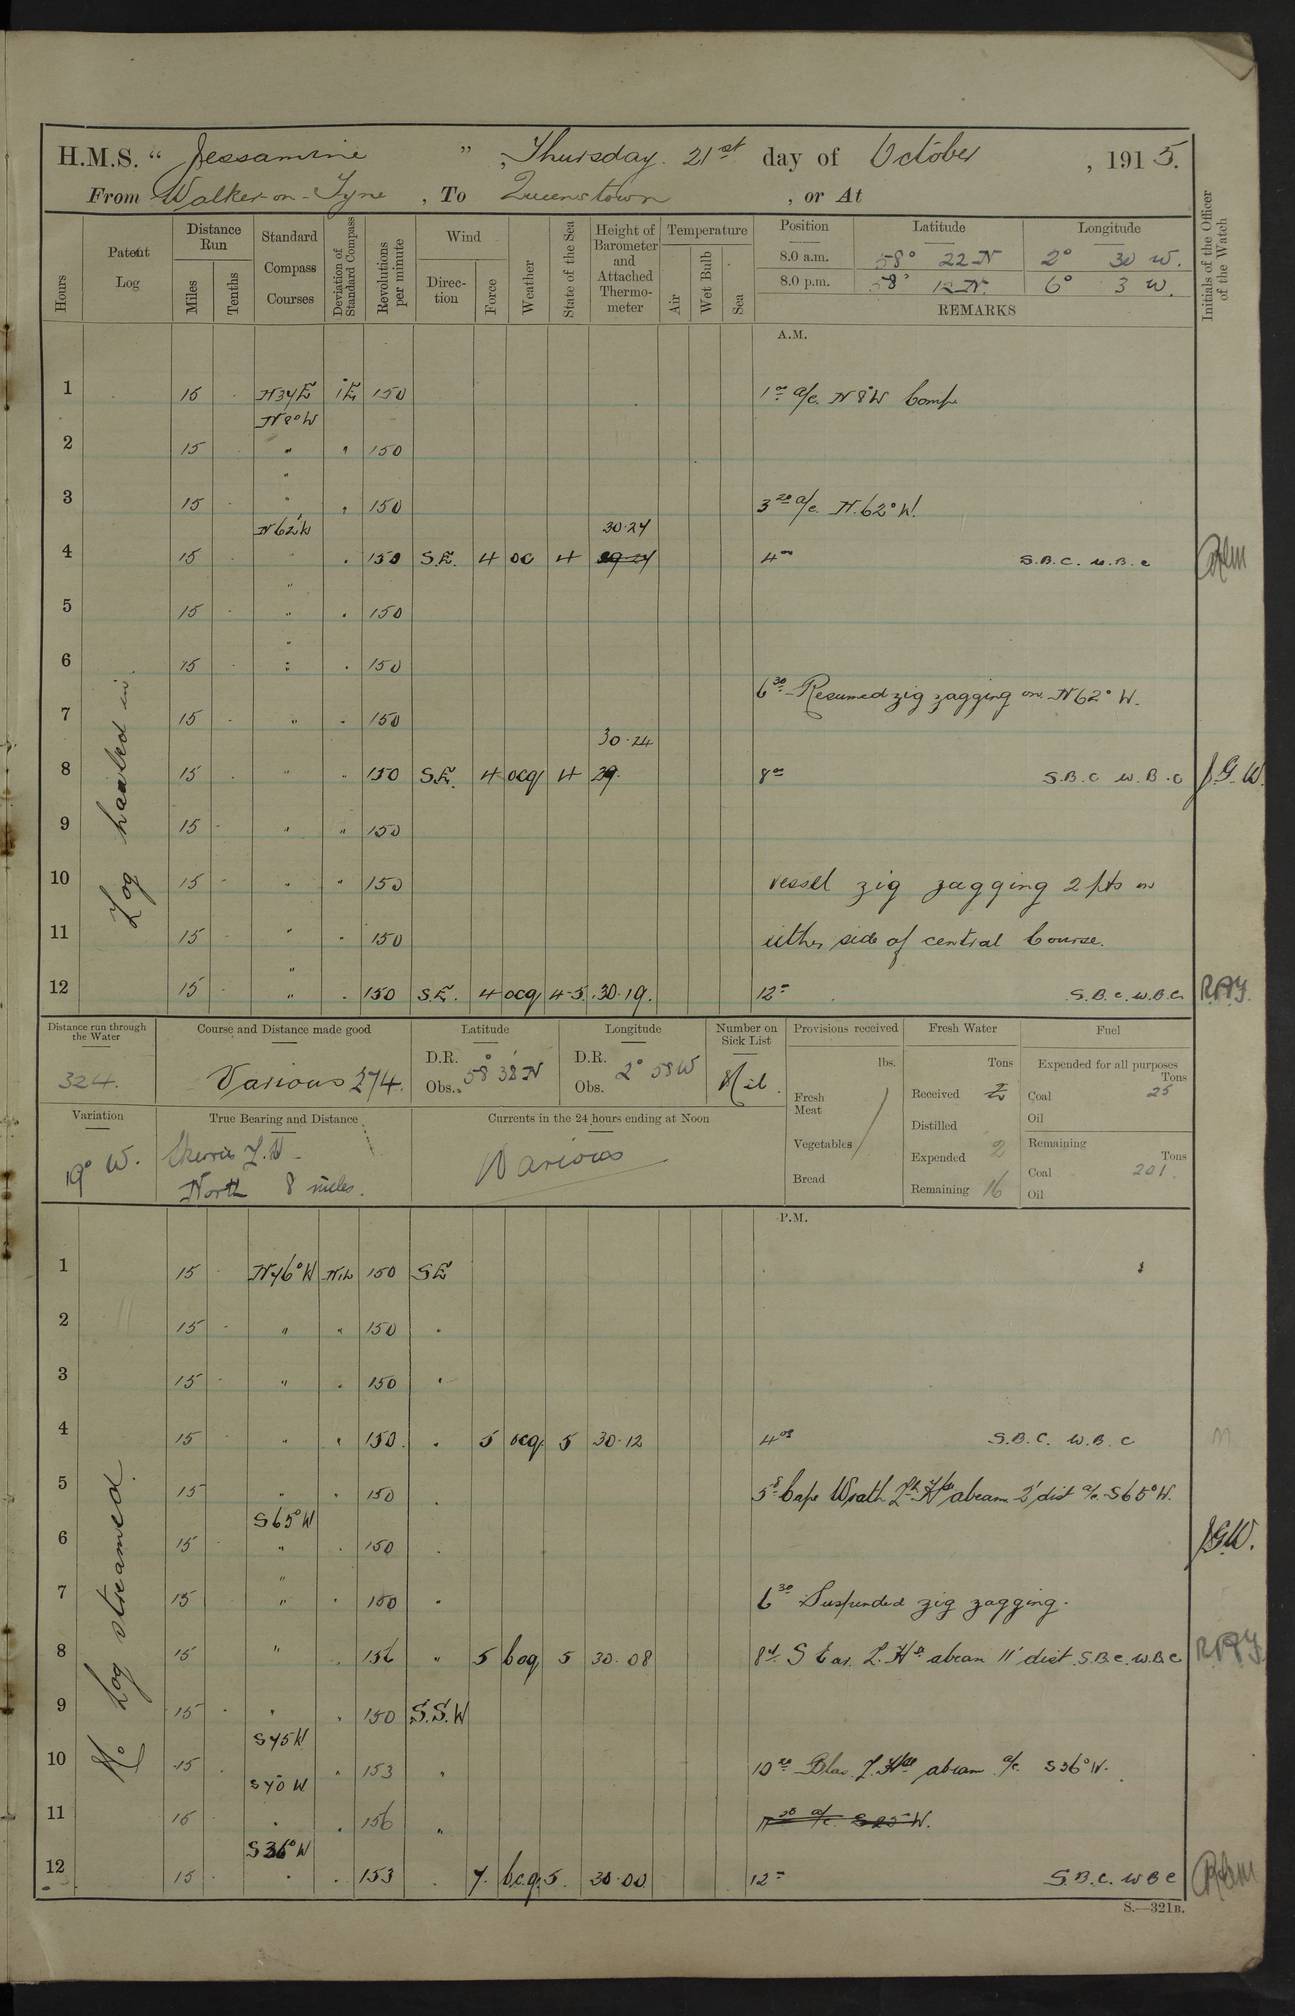 H.M.S. " Jessamine " , Thursday. 21st day of October , 1915.
From Walker-on-Tyne , To Queenstown , or At
Hours
Patent Log
Distance Run
Miles
Tenths
Standard Compass Courses
Deviation of Standard Compass
Revolutions per minute
Wind
Direction
Force
Weather
State of the Sea
Height of Barometer and Attached Thermometer
Temperature
Air
Wet Bulb
Sea
Position
Latitude
Longitude
8.0 a.m. 58° 22 N 2° 30 W.
8.0 p.m. 58° 12 N. 6° 3 W.
REMARKS
Initials of the Officer of the Watch
A.M.
Log hauled in.
1 15 N34E 1°E 150 1 a/c. N8°W Comp
N8°W
2 15 " " 150
3 15 " " 150 3 20 a/c. N.62°W.
N62°W 30.24
4 15 " " 150 S.E. 4 oc 4 4 00 S.B.C. W.B.C
5 15 " " 150
6 15 " " 150
6 30 Resumed zig zagging on N62°W.
7 15 " " 150
30.24
8 15 " " 150 S.E. 4 ocq 4 29. 8 00 S.B.C W.B.C J.G.W.
9 15 " " 150
10 15 " " 150 vessel zig zagging 2 pts on
11 15 " " 150 either side of central Course.
12 15 " " 150 S.E. 4 ocq 4-5 30.19. 12 S.B.C. W.B.C. R.A.Y.
Distance run through the Water
324.
Course and Distance made good
Various 274.
Latitude
D.R. 58° 38' N
Obs.
Longitude
D.R. 2° 58 W
Obs.
Number on Sick List
Nil.
Provisions received
lbs.
Fresh Meat
Vegetables
Bread
Fresh Water
Tons
Received
Distilled
Expended 2
Remaining 16
Fuel
Expended for all purposes
Tons
Coal 25
Oil
Remaining
Tons
Coal 201.
Oil
Variation
19° W.
True Bearing and Distance
Skerries L.H
North 8 miles.
Currents in the 24 hours ending at Noon
Various
P.M.
No Log streamed.
1 15 N76°W Nil 150 SE
2 15 " " 150 "
3 15 " " 150 "
4 15 " " 150. " 5 ocq 5 30.12 4 00 S.B.C. W.B.C
5 15 " " 150 " 5 8 Cape Wrath Lt. Ho abeam 2' dist a/c. S65°W.
S65°W
6 15 " " 150 " J.G.W.
7 15 " " 150 " 6 30 Suspended zig zagging.
8 15 " " 156 " 5 boq 5 30.08 8 S Ear. L. Ho. abeam 11' dist. S.B.C. W.B.C R.A.Y.
9 15 " " 150 S.S.W
S45W
10 15 " 153 " 10 Glas. L. Hse abeam a/c. S36°W.
S40W
11 15 " " 156 " a/c. S25°W.
S36°W
12 15 " " 153 " 7. b.c.q. 5. 30.00 12 S.B.C. W B C
S.—321B.